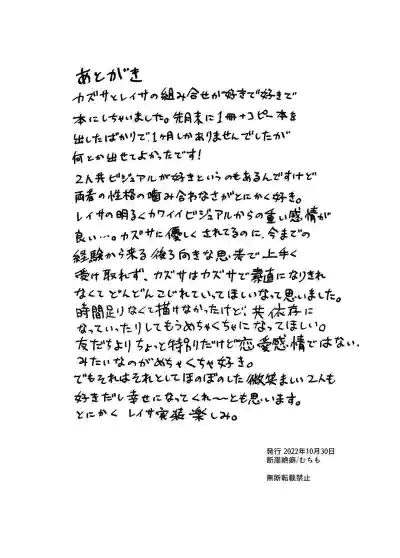 あとがき
カズサとレイサの組み合せが好きで好きで
本にしちゃいました。先月末に1冊+コピー本を
出したばかりで、1ヶ月しかありませんでしたが
何とか出せてよかったです!
2人共ビジュアルが好きというのもあるんですけど
両者の性格の噛み合わなさがとにかく好き。
レイサの明るくカワイイビジュアルからの重い感情が
良い…。カズサに優しくされてるのに、今までの
経験から来る後ろ向きな思考で上手く
受け取れず、カズサはカズサで素直になりきれ
なくてどんどんこじれていってほしいなって思いました。
時間足りなくて描けなかったけど、共依存に
なっていったりしてもうめちゃくちゃになってほしい。
友だちよりちょっと特別だけど恋愛感情ではない、
みたいなのがめちゃくちゃ好き。
でもそれはそれとしてほのぼのした微笑ましい2人も
好きだし幸せになってくれ〜とも思います。
とにかくレイサ実装楽しみ。
発行 2022年10月30日
断崖絶癖/むちも
無断転載禁止